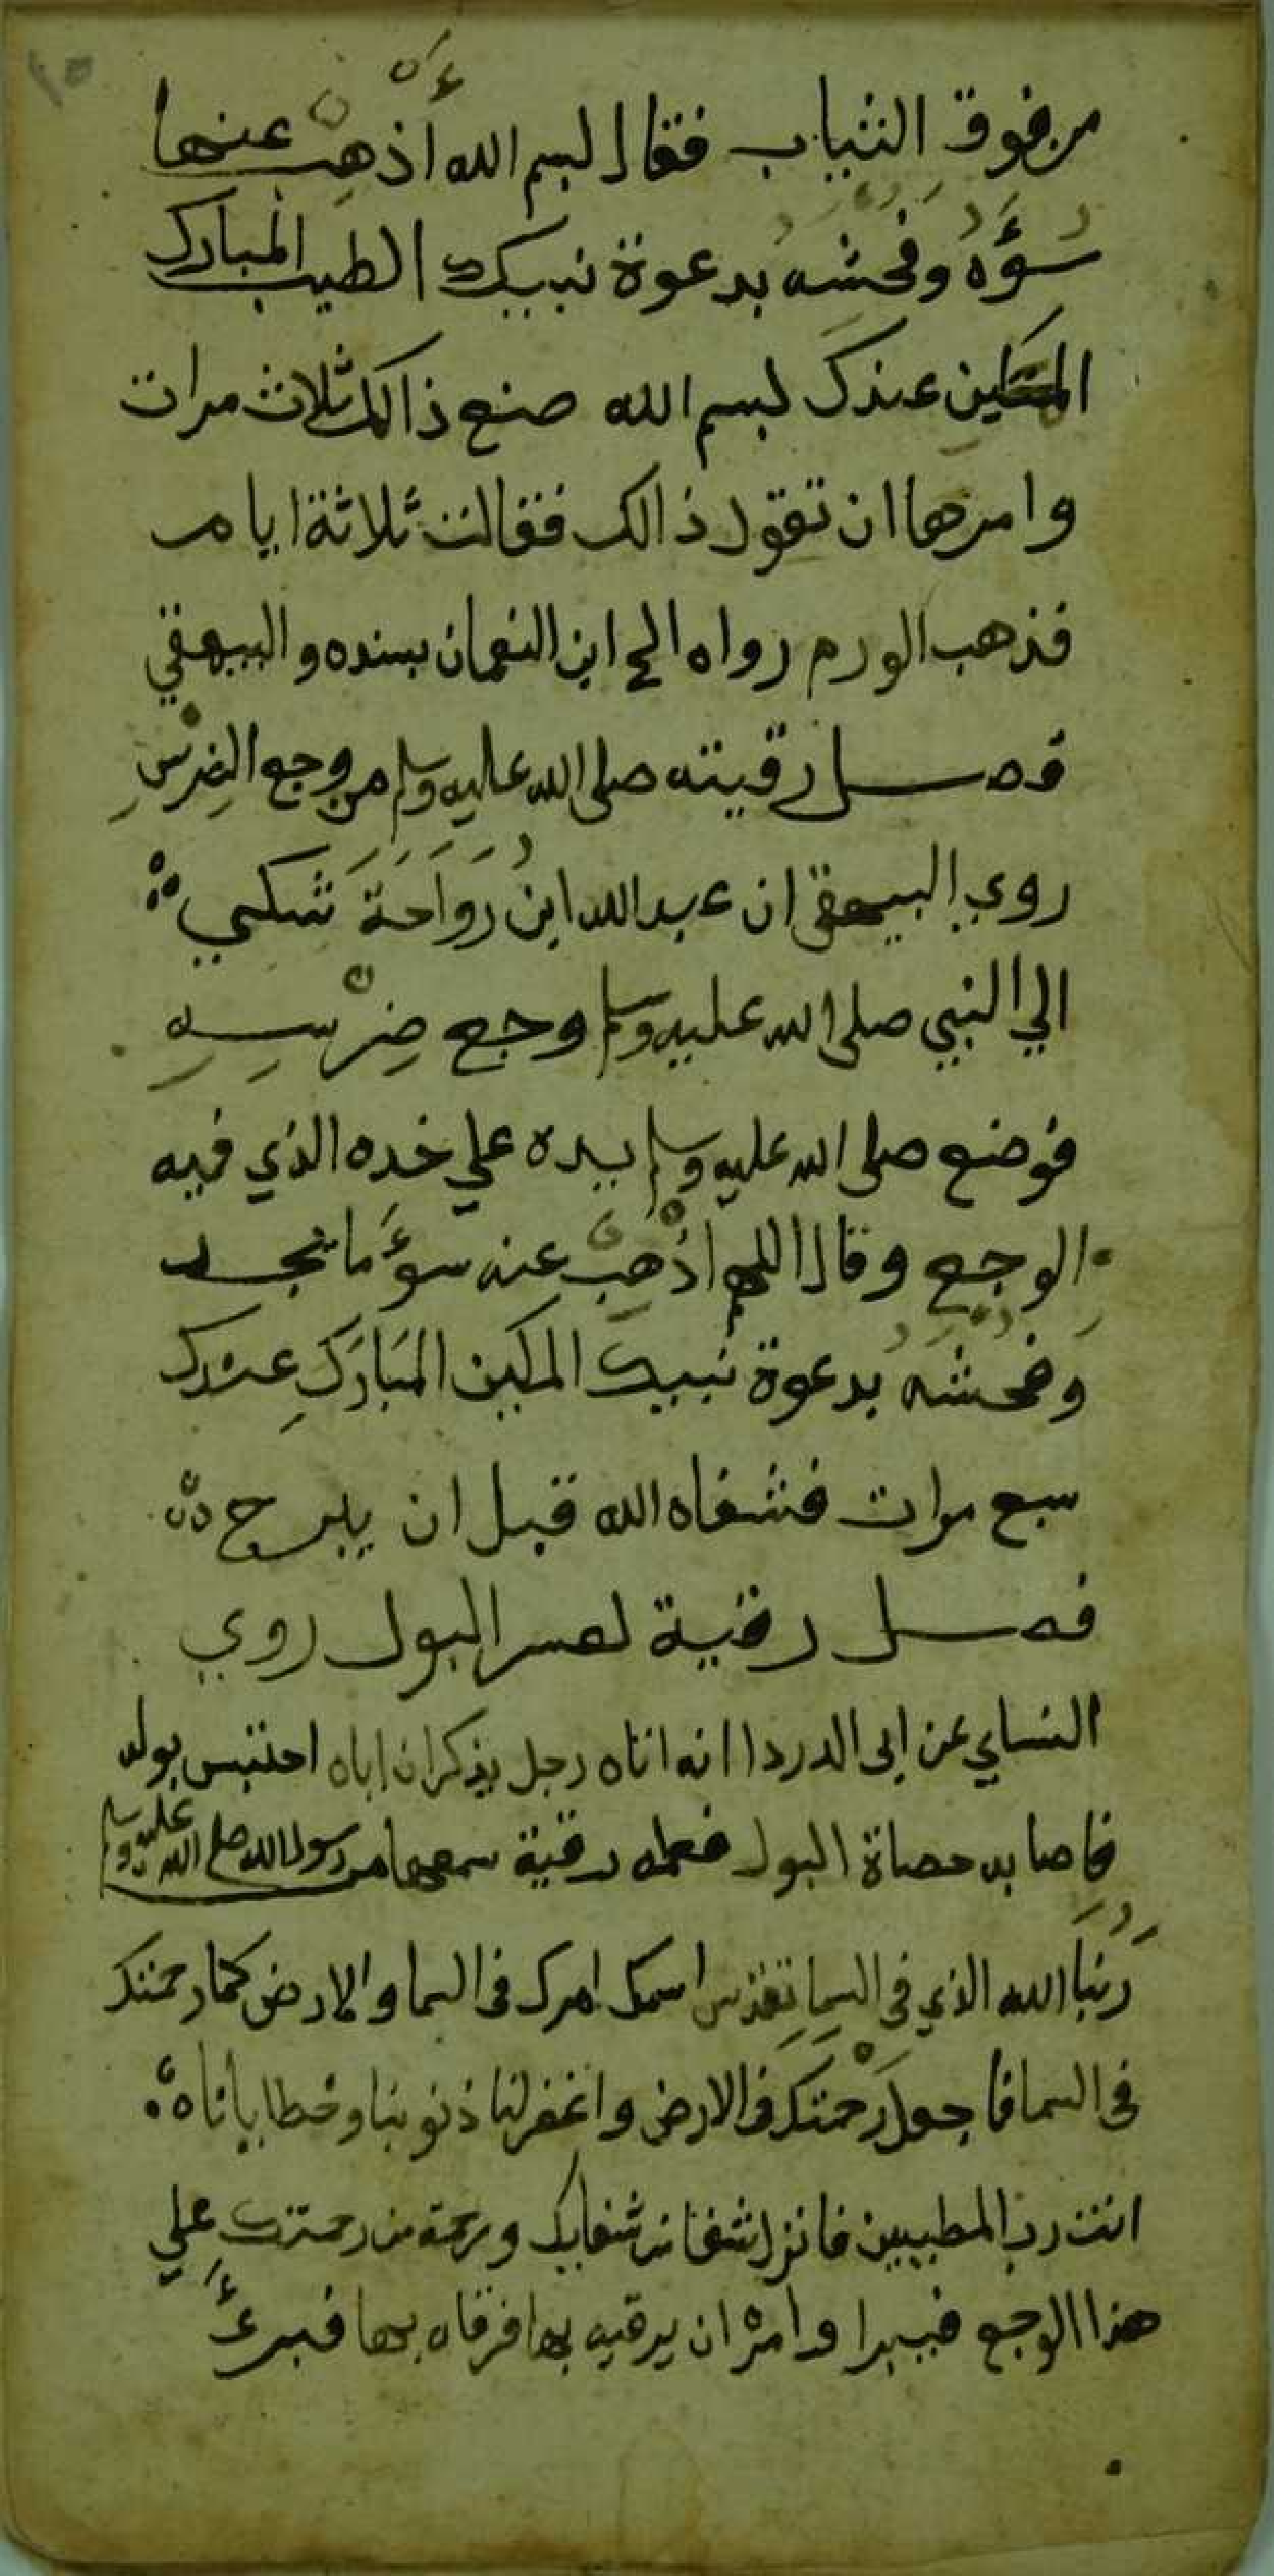 من فوق الثياب فقال بسم الله أذهب عنها
سؤه وفحشه بدعوة نبيك الطيب المبارك
المكين عندك بسم الله صنع ذالك ثلاث مرات
وامرها ان تقول ذالك فقالت ثلاثة ايام
فذهب الورم رواه ابن النعمان بسنده والبيهقي
فصل رقيته صلى الله عليه وسلم من وجع الضرْسِ
روي البيهقي ان عبد الله ابنُ رَوَاحَةَ شكي
الي النبي صلى الله عليه وسلم وجع ضِرْسِهِ
فوضع صلى الله عليه وسلم يده علي خده الذي فيه
الوجع وقال اللهم اذْهِبْ عنه سوءَ ما يجد
وَفحشَهُ بدعوة نبيك المكين المبَارَكِ عندك
سبع مرات فشفاه الله قبل ان يبرح
فصل رقية لعسر البول روي
النساي عن ابى الدردا انه اتاه رجل يذكر ان اباه احتبس بوله
فاصابه حصاة البول فعلمه رقية سمعها من رسول الله صلى الله عليه وسلم
رَبُّنَا الله الذي فى السما تقدس اسمك امرك فى السما والارض كما رحمتك
فى السما فاجعل رَحْمتَك فى الارض واغفر لنا ذنوبنا وخطايانا
انت رب المطيبين فانزل شفا من شفايك ورحمة من رحمتك علي
هذا الوجع فيبرا وامره ان يرقيه بها فرقاه بها فبرئَ